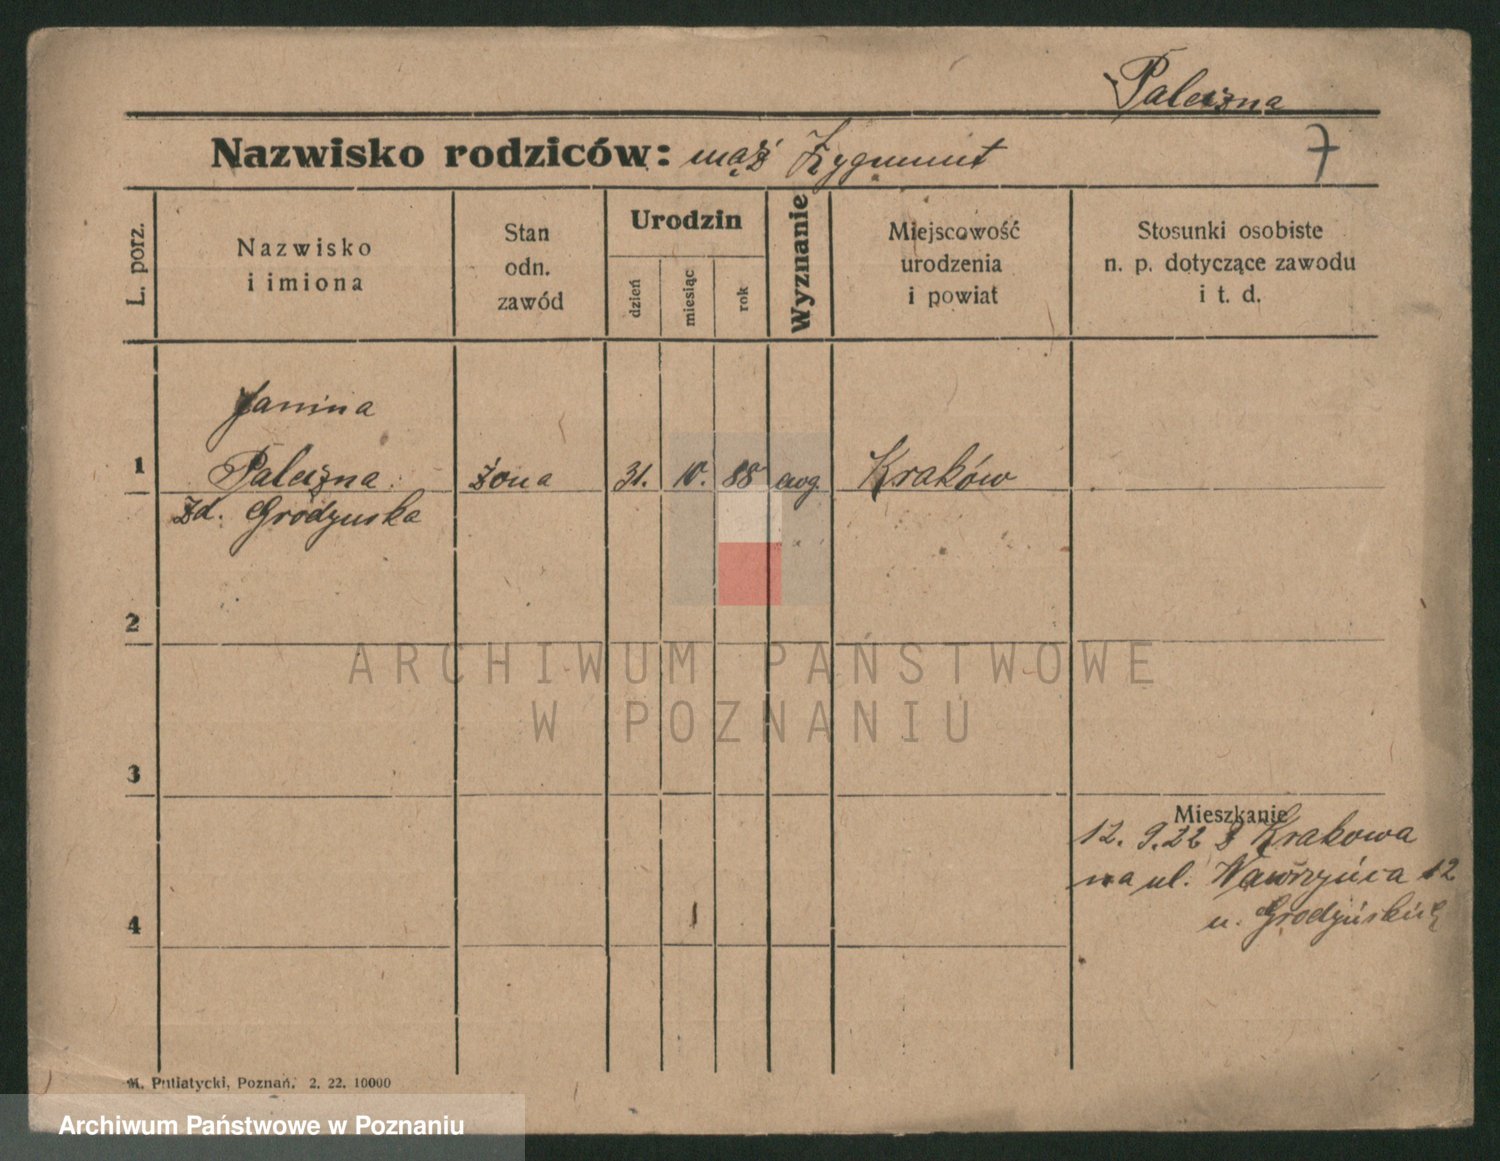 Paleizna
Nazwisko rodziców: mąż Zygmunt
7
L. porz.
Nazwisko
i imiona
Stan
odn.
zawód
Urodzin
dzień
miesiąc
rok
Wyznanie
Miejscowość
urodzenia
i powiat
Stosunki osobiste
n. p. dotyczące zawodu
i t. d.
Janina
1 Paleizna żona 31. 10. 88 ewg. Kraków
zd. Grodzynska
2
ARCHIWUM PAŃSTWOWE
W POZNANIU
3
Mieszkanie
12. 9.22 z Krakowa
na ul. Wawrzyńca 12
4
u. Grodzyńskich
M. Putiatycki, Poznań. 2. 22. 10000
Archiwum Państwowe w Poznaniu